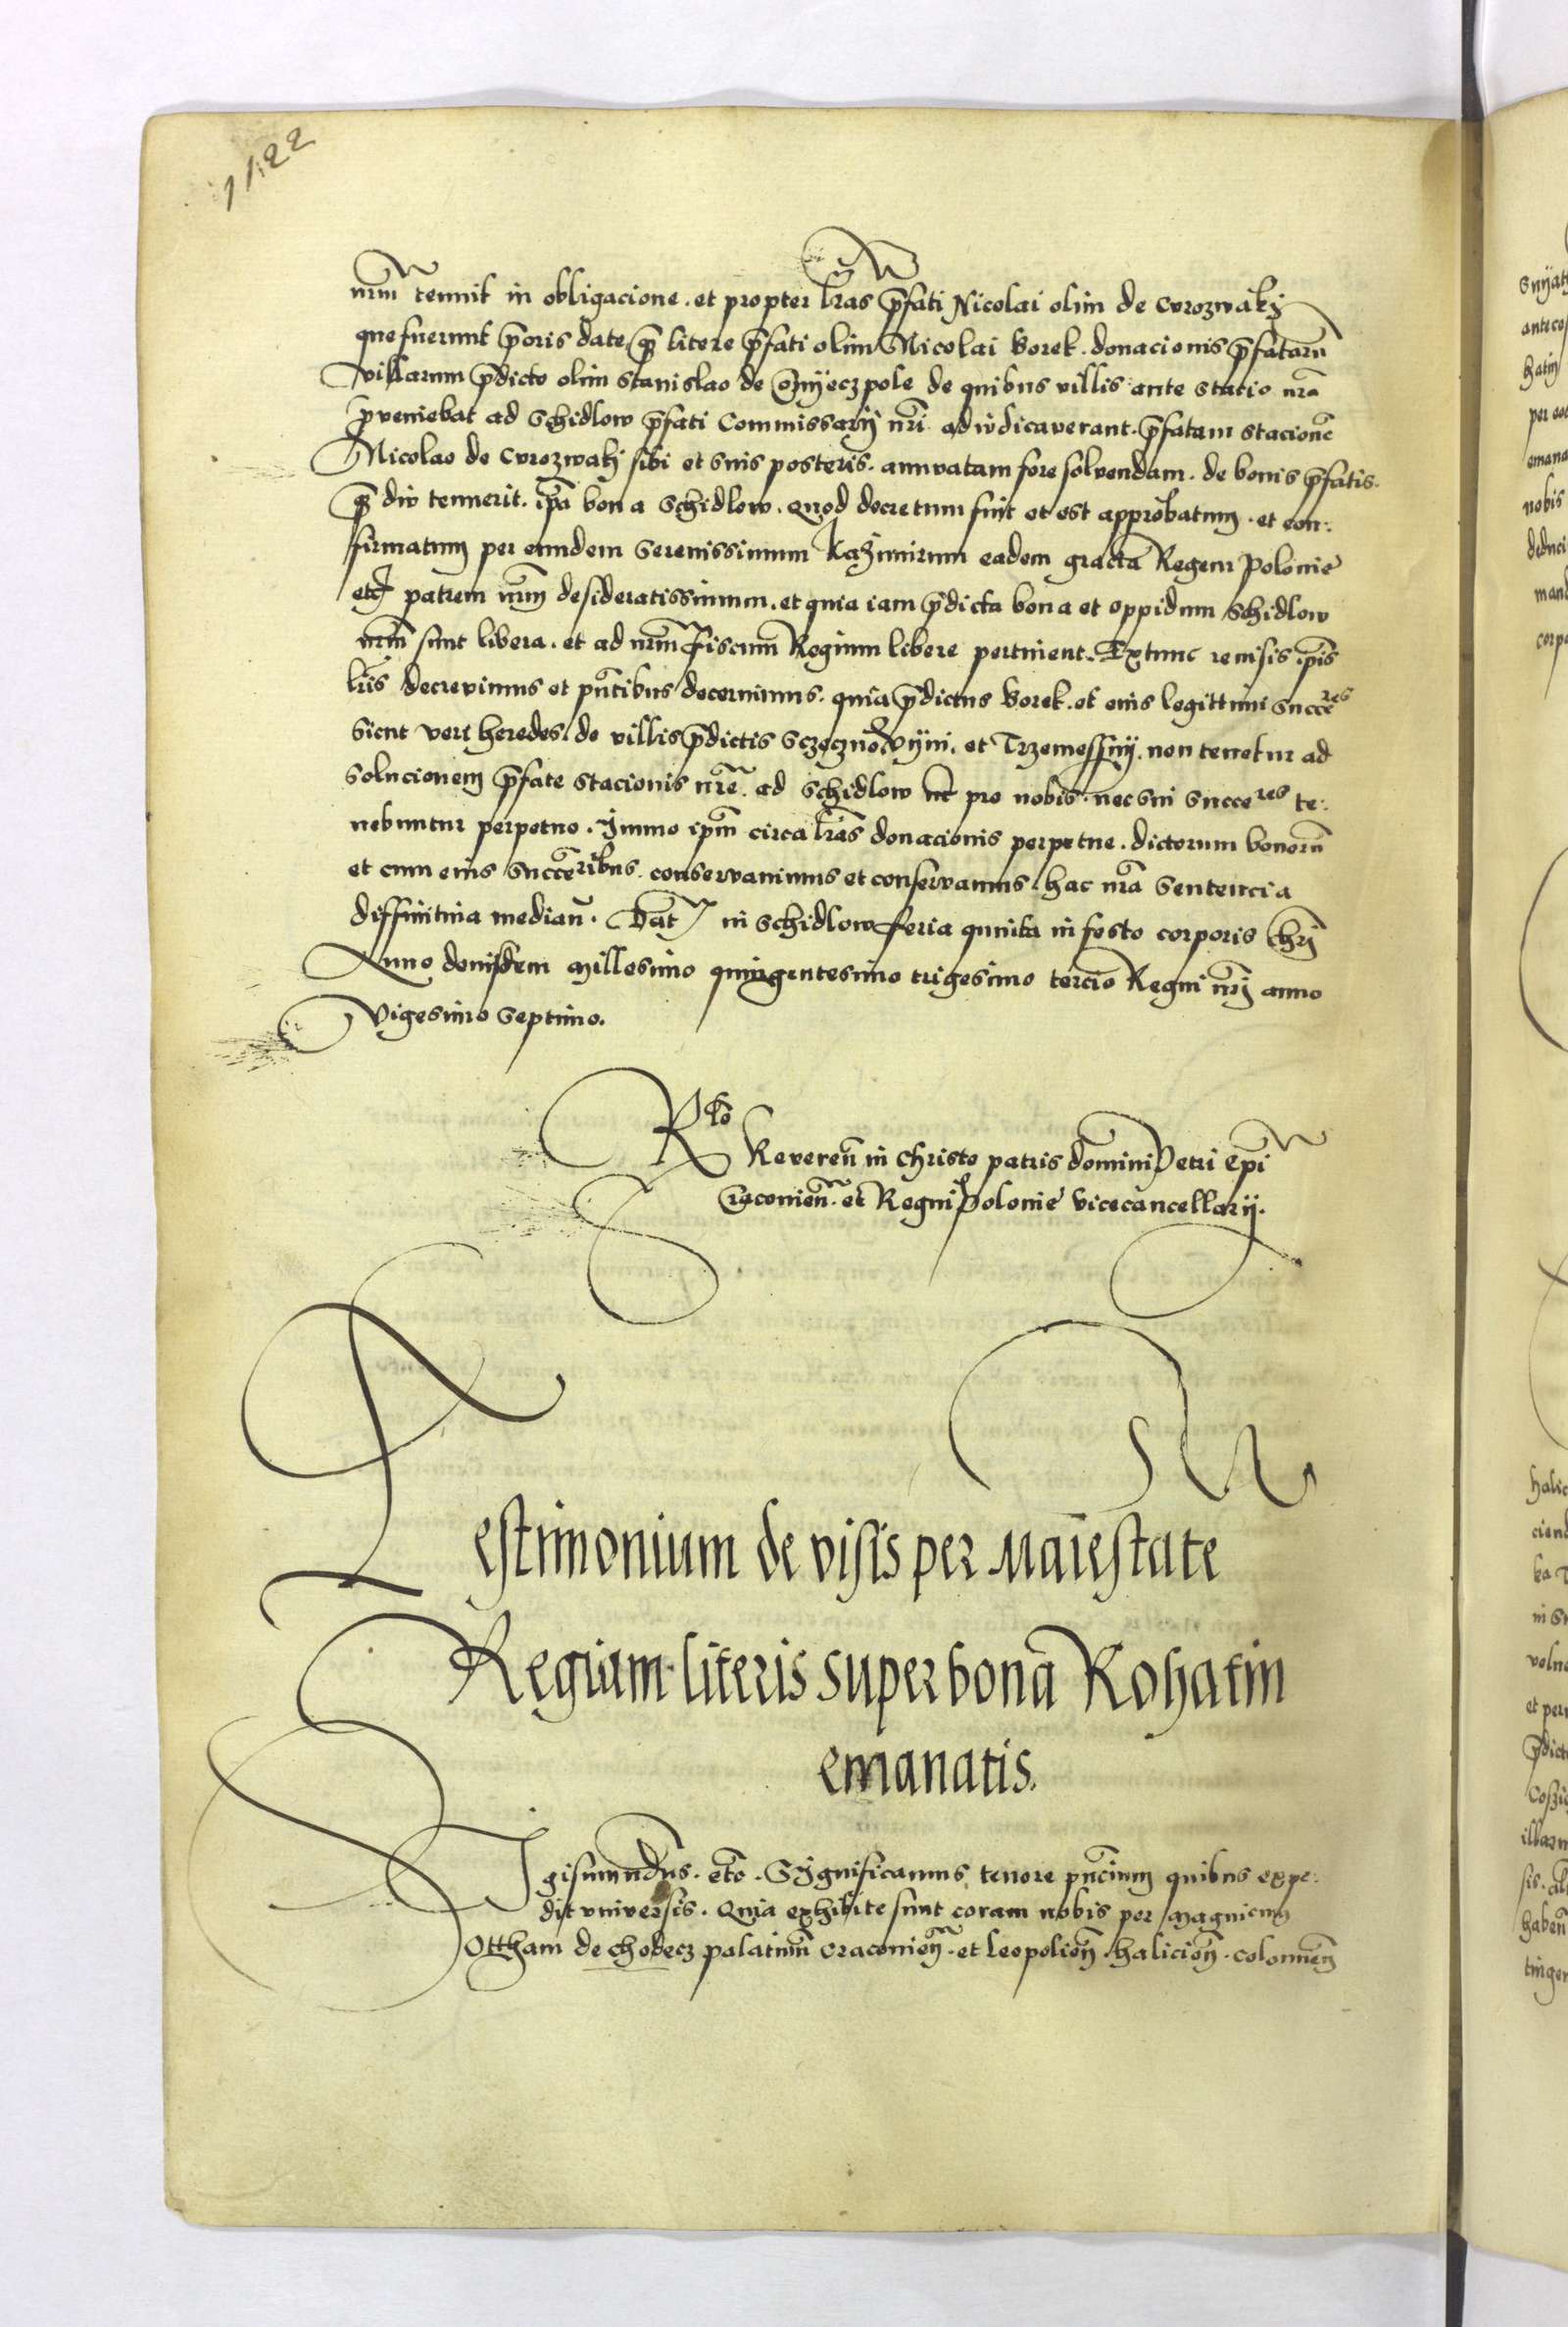 1122
nrm̃ tenuit in obligacione. et propter lr̃as p̃fati Nicolai olim de Curozwaki
que fuerunt p̃oris date q̃ȝ litere p̃fati olim Nicolai Borek. donacionis p̃fatarũ
villarum p̃dicto olim Stanislao de Conyeczpole de quibus villis ante statio nr̃a
p̃veniebat ad Schidlow p̃fati Commissarij nr̃i adiudicaverant. p̃fatam stacionẽ
Nicolao de Curozwaki sibi et suis posteris. annuatam fore solvendam. de bonis p̃fatis.
q̃ȝ diu tenuerit. ip̃a bona Schidlow. quod decretum fuit et est approbatum. et con:
firmatum per eundem Serenissimum Kazimirum eadem gracia Regem Polonie
etc̃ patrem nr̃m desideratissimum. et quia iam p̃dicta bona et oppidum Schidlow
nrm̃ sunt libera. et ad nrm̃ Fiscum Regium libere pertinent. Extunc revisis ip̃is
lr̃is decrevimus et pñtibus decernimus. quia p̃dictus Borek. et eius legittimi succe͂res
sicut veri heredes. de villis p̃dictis et Trzemessny. non tenetur ad
solucionem p̃fate stacionis nr̃e ad Schidlow nec pro nobis. nec sui succeres te:
nebuntur perpetuo. Immo ip̃m circa lr̃as donacionis perpetue. dictorum bonorũ
et cum eius succe͂ribus. conservavimus et conservamus. hac nr̃a sentencia
diffinitiva median̄. Dat̃ in Schidlow feria quinta in festo corporis Chr̃i
Anno domini Millesimo quingentesimo trigesimo tercio Regni nr̃i anno
Vigesimo septimo.
Rᵗᵒ
Reveren̄ in christo patris domini Petri Ep̃i
Cracovien̄. et Regni Polonie vicecancellarij.
Testimonium de visis per Maiestate
Regiam literis super bona Rohatin
emanatis.
Sigismundus. etc̃. Significamus tenore pñcium quibus expe:
dit universis. Quia exhibite sunt coram nobis per Magnicum
Ottham de Chodecz palatinũ Cracovien̄. et Leopolien̄. halicien̄. colomien̄